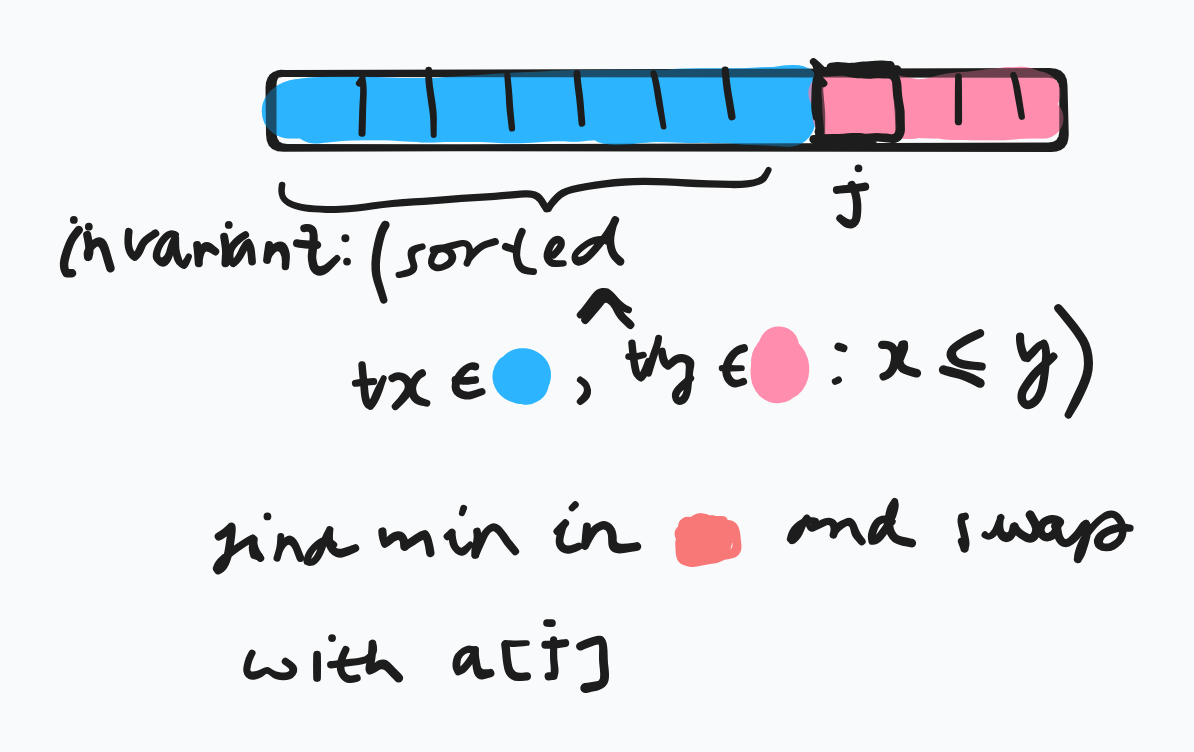 j
invariant: (sorted
∧
∀x ∈ , ∀y ∈ : x ≤ y)
find min in and swap
with a[j]